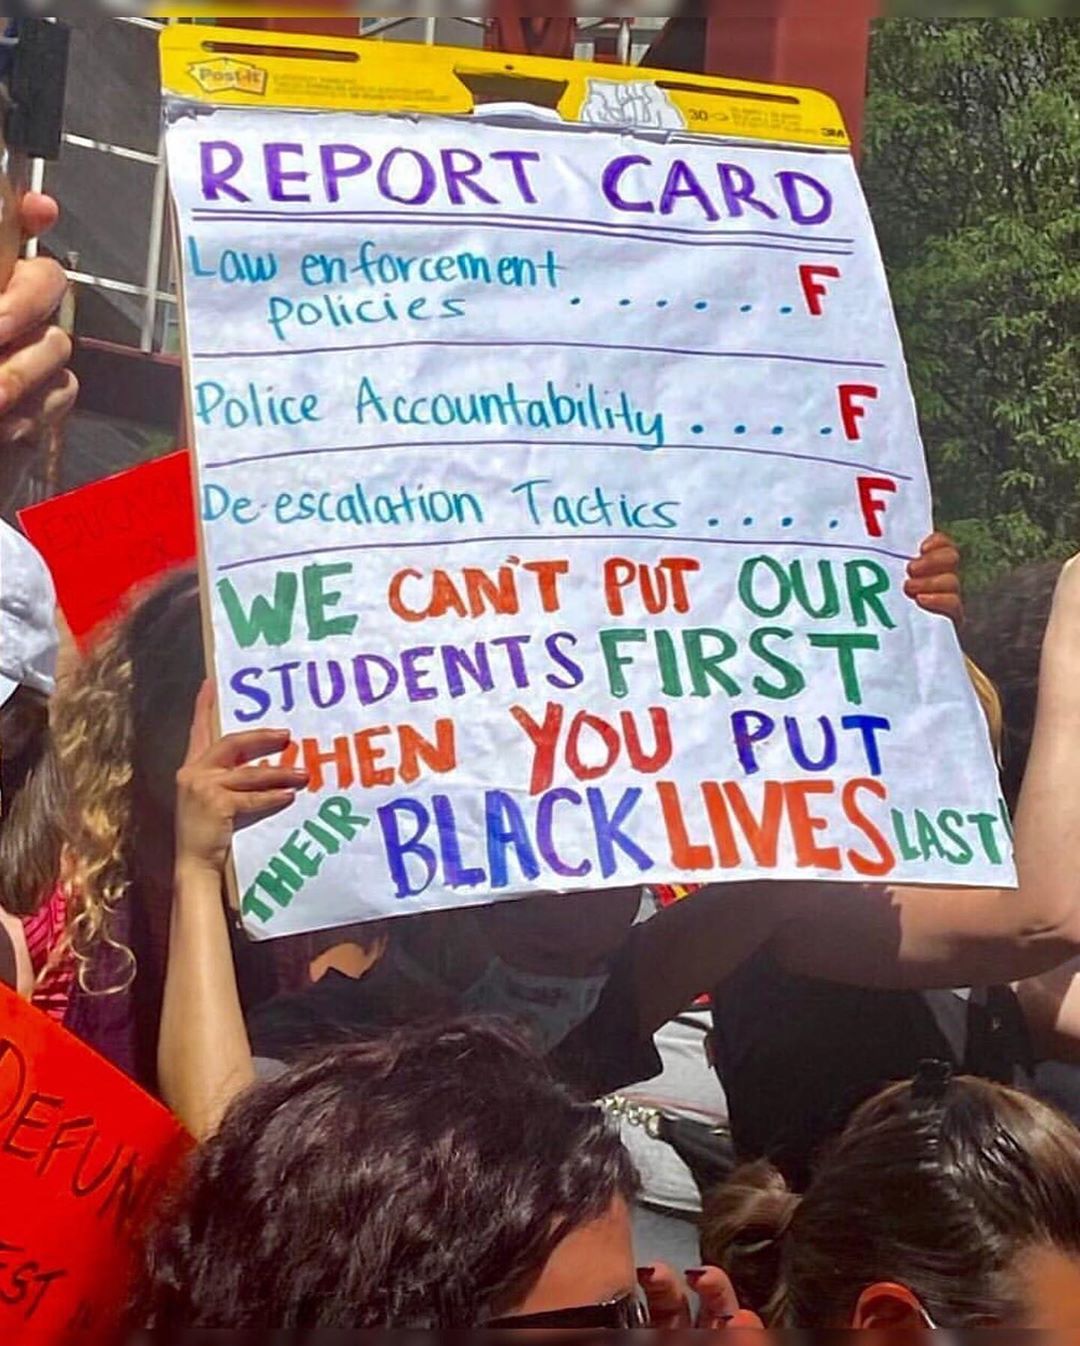 Post-it
30
3M
REPORT CARD
Law enforcement
policies . . . . . . . F
Police Accountability . . . . . F
De-escalation Tactics . . . . . F
WE CAN'T PUT OUR
STUDENTS FIRST
WHEN YOU PUT
THEIR BLACK LIVES LAST!
EDUCATION
FOR
DEFUN